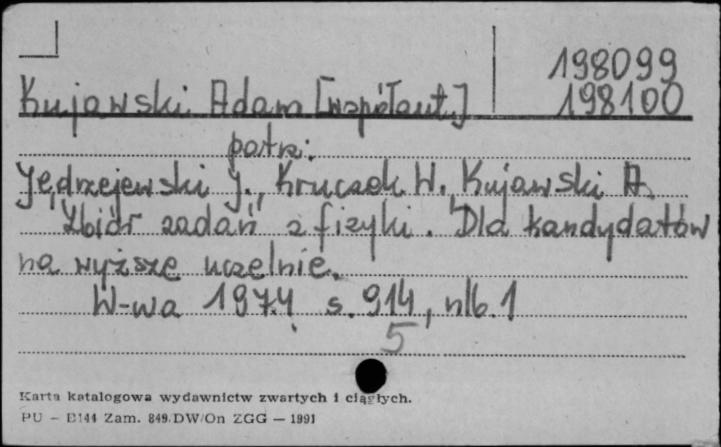 198099
Kujawski Adam [współaut.] 198100
patrz:
Jędrzejewski J., Kruczek W., Kujawski A.
Zbiór zadań z fizyki. Dla kandydatów
na wyższe uczelnie.
W-wa 1974 s. 914, nlb. 1
5
Karta katalogowa wydawnictw zwartych i ciągłych.
PU – D144 Zam. 849/DW/On ZGG — 1991